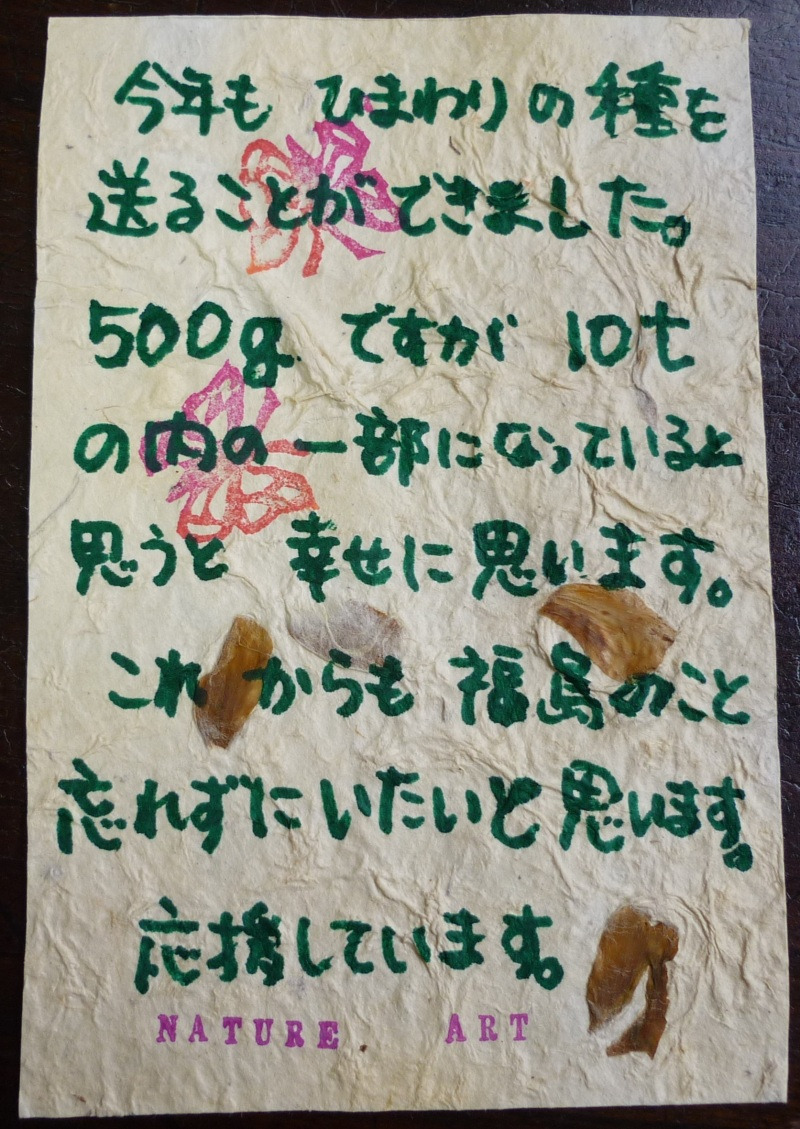 今年も ひまわりの種を
送ることができました。
500g ですが 10t
の内の一部になっていると
思うと 幸せに思います。
これからも 福島のこと
忘れずにいたいと思います。
応援しています。
NATURE ART